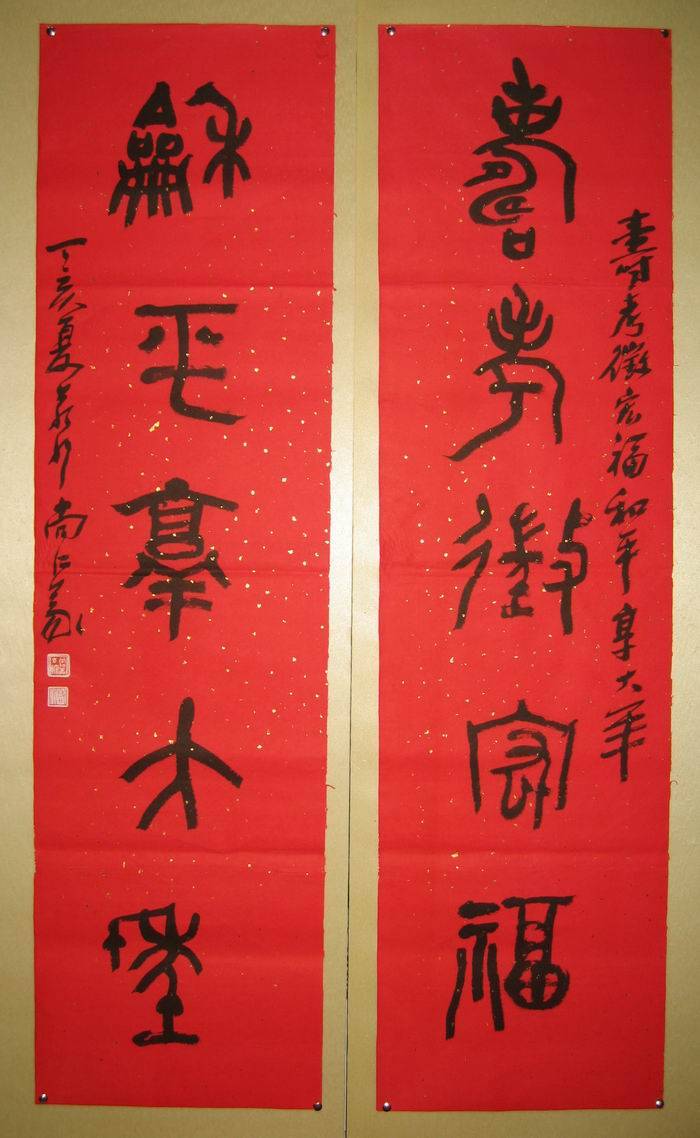 壽考徵宏福
壽考徵宏福和平享大年
龢平享大年
丁亥夏 尚仁義